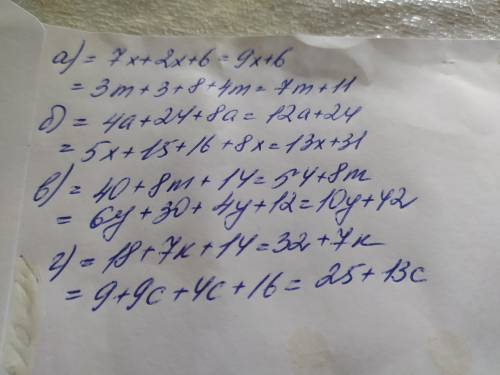 а) = 7x+2x+6=9x+6
= 3m+3+8+4m=7m+11
б) = 4a+24+8a=12a+24
= 5x+15+16+8x=13x+31
в) = 40+8m+14=54+8m
= 6y+30+4y+12=10y+42
г) = 18+7к+14=32+7к
= 9+9c+4c+16=25+13c